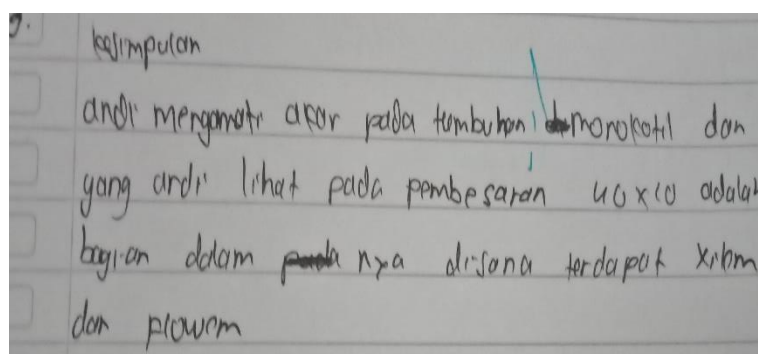 kesimpulan
andi mengamati akar pada tumbuhan monokotil dan
yang andi lihat pada pembesaran 40x10 adalah
bagian dalam nya disana terdapat xibm
dan plowem